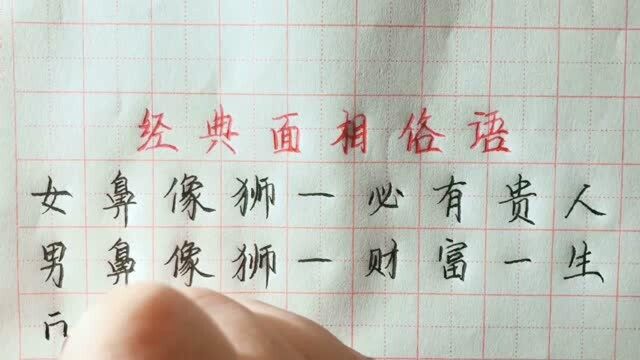 经典面相俗语
女鼻像狮一必有贵人
男鼻像狮一财富一生